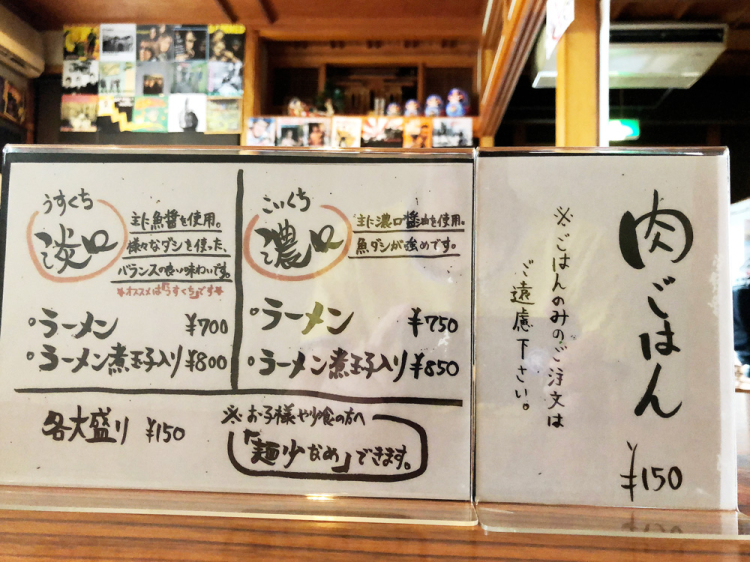 うすくち
淡口
主に魚醤を使用。
様々なダシを使った、
バランスの良い味わいです。
オススメは「うすくち」です
ラーメン ¥700
ラーメン煮玉子入り ¥800
こいくち
濃口
主に濃口醤油を使用。
魚ダシが強めです。
ラーメン ¥750
ラーメン煮玉子入り ¥850
各大盛り ¥150
※お子様や少食の方へ
「麺少なめ」できます。
肉ごはん
※ごはんのみのご注文は
ご遠慮下さい。
¥150